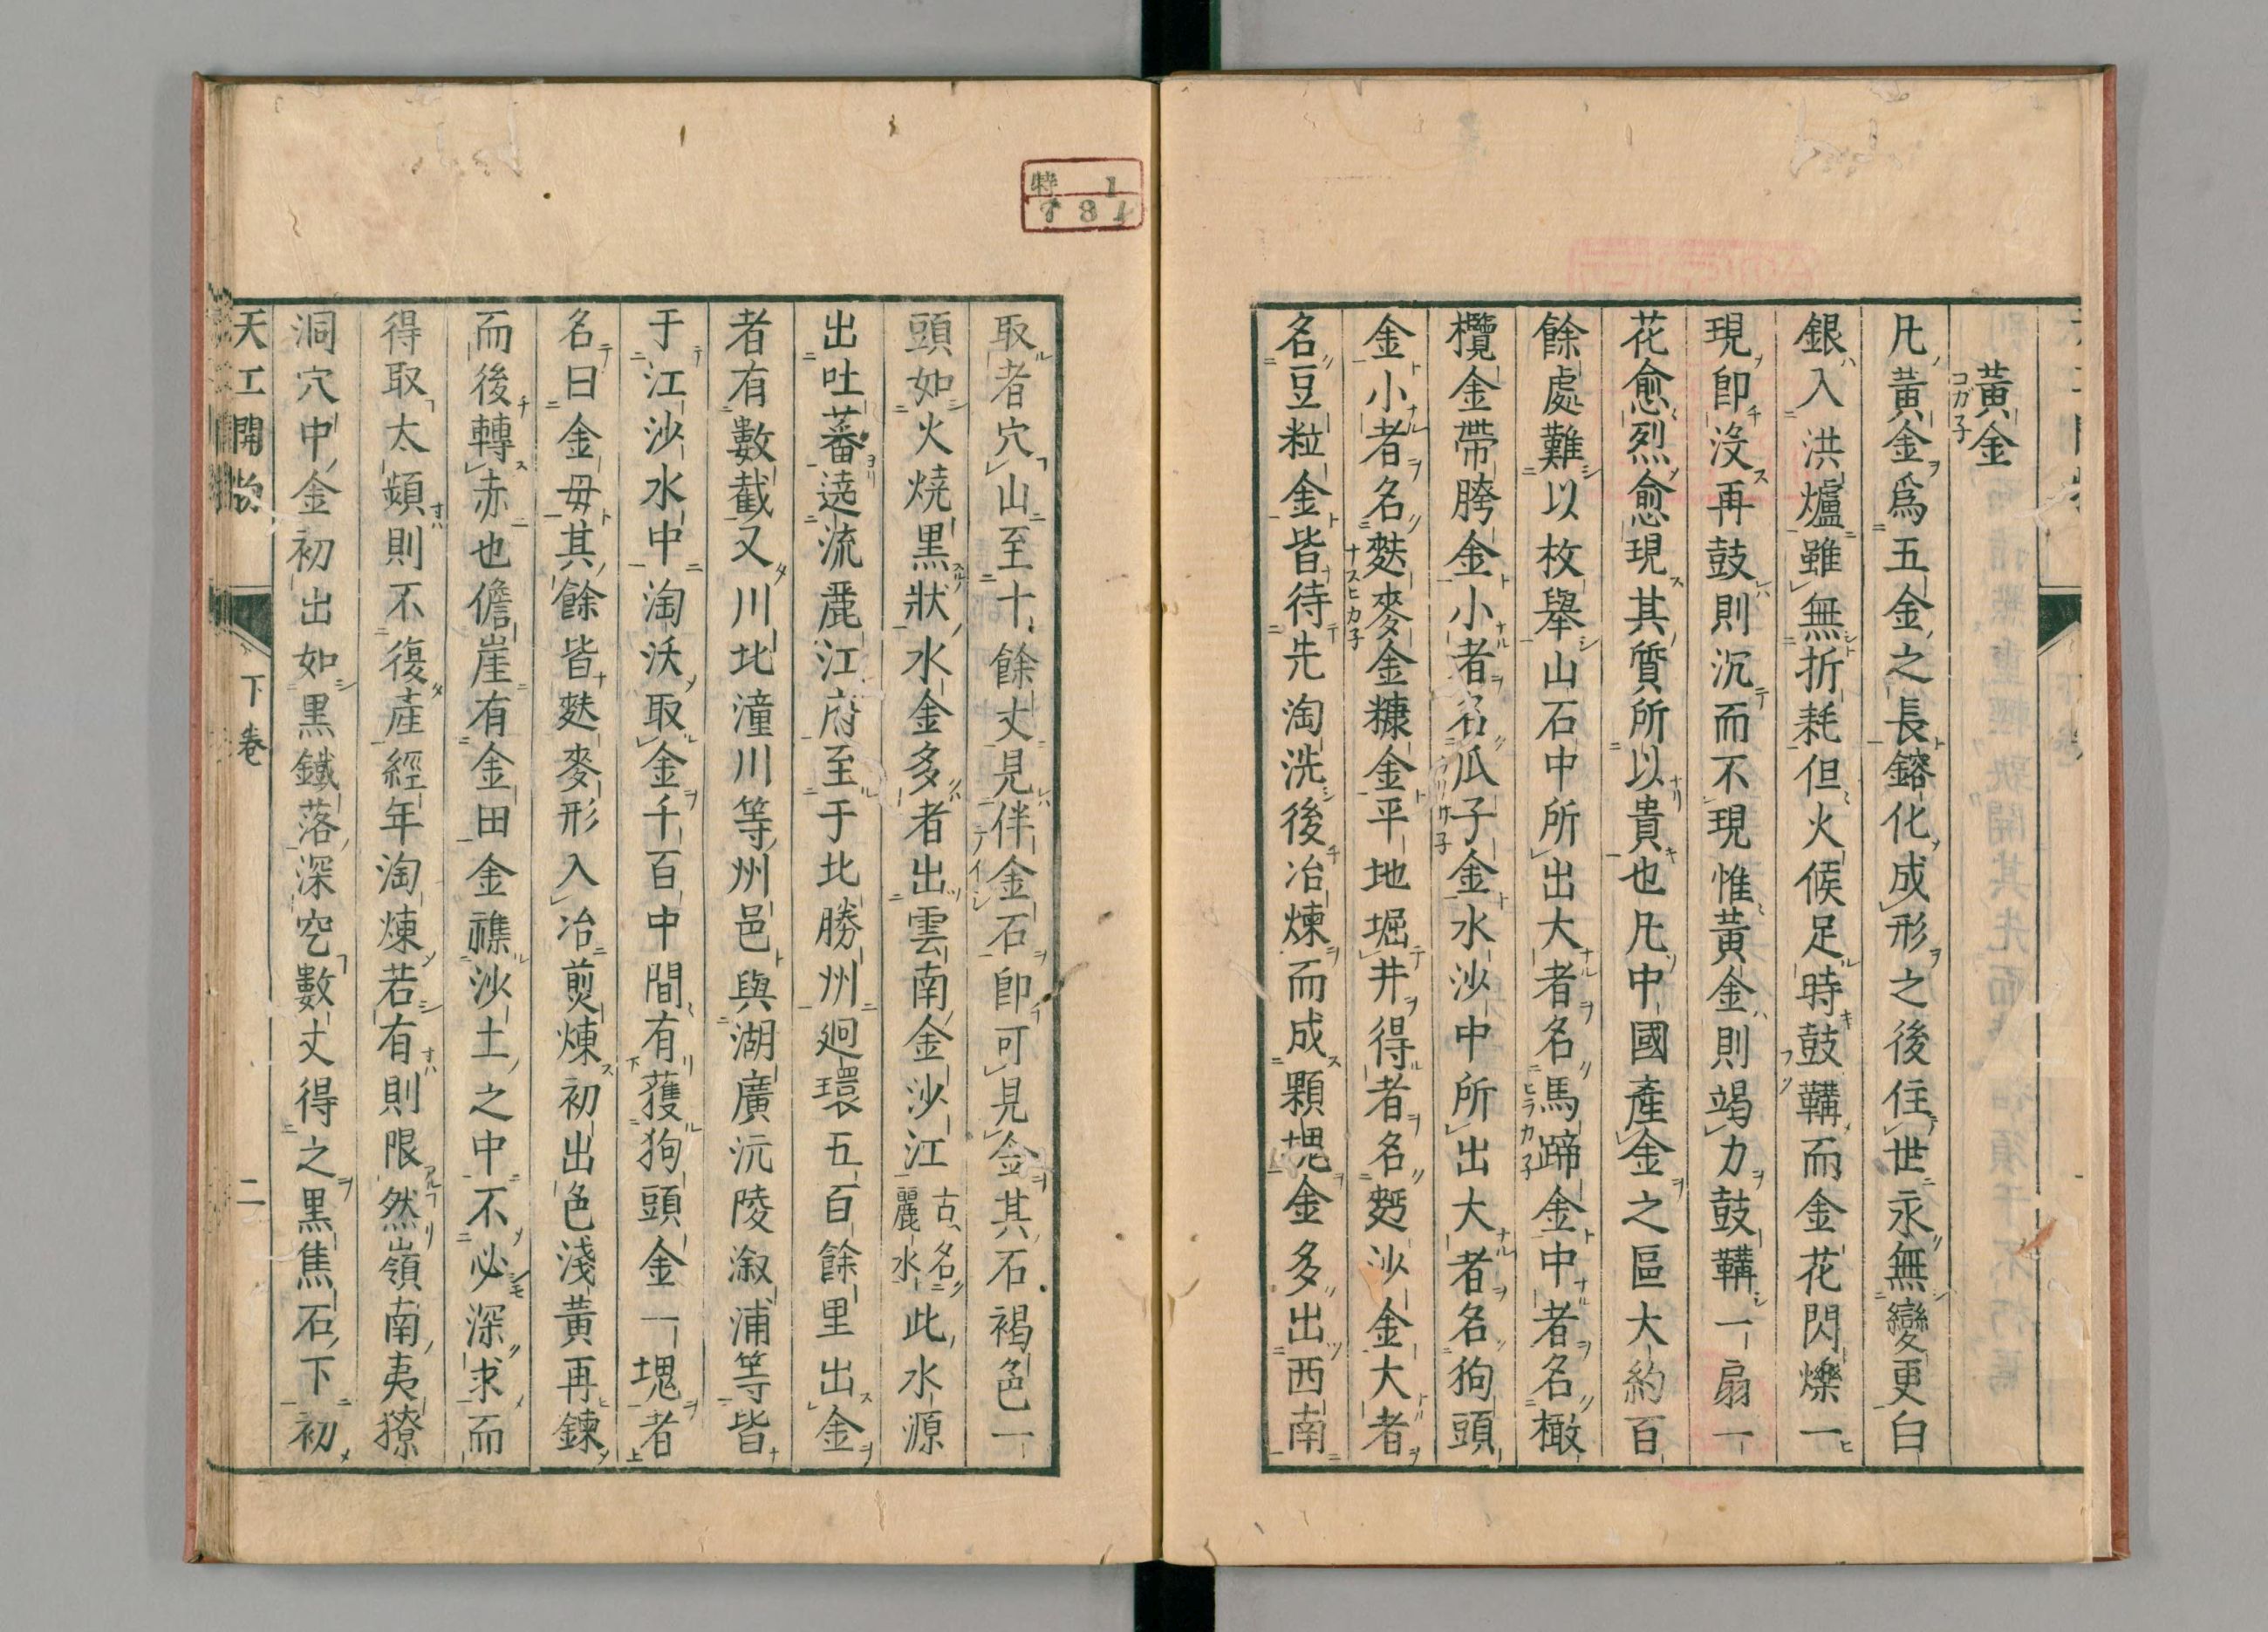 黃金
コガ子
凡黃金爲五金之長鎔化成形之後住世永無變更白
銀入洪爐雖無折耗但火候足時鼓鞴而金花閃爍一
現卽沒再鼓則沉而不現惟黃金則竭力鼓鞴一扇一
花愈烈愈現其質所以貴也凡中國產金之區大約百
餘處難以枚舉山石中所出大者名馬蹄金中者名橄
欖金帶胯金小者名瓜子金水沙中所出大者名狗頭
金小者名麩麥金糠金平地堀井得者名麪沙金大者
名豆粒金皆待先淘洗後冶煉而成顆塊金多出西南
取者穴山至十餘丈見伴金石卽可見金其石褐色一
頭如火燒黑狀水金多者出雲南金沙江古名麗水此水源
出吐蕃遶流麗江府至于北勝州廻環五百餘里出金
者有數截又川北潼川等州邑與湖廣沅陵溆浦等皆
于江沙水中淘沃取金千百中間有獲狗頭金一塊者
名曰金母其餘皆麩麥形入冶煎煉初出色淺黃再鍊
而後轉赤也儋崖有金田金雜沙土之中不必深求而
得取太頻則不復產經年淘煉若有則限然嶺南夷獠
洞穴中金初出如黑鐵落深穵數丈得之黑焦石下初
天工開物
下卷
二
特1
781